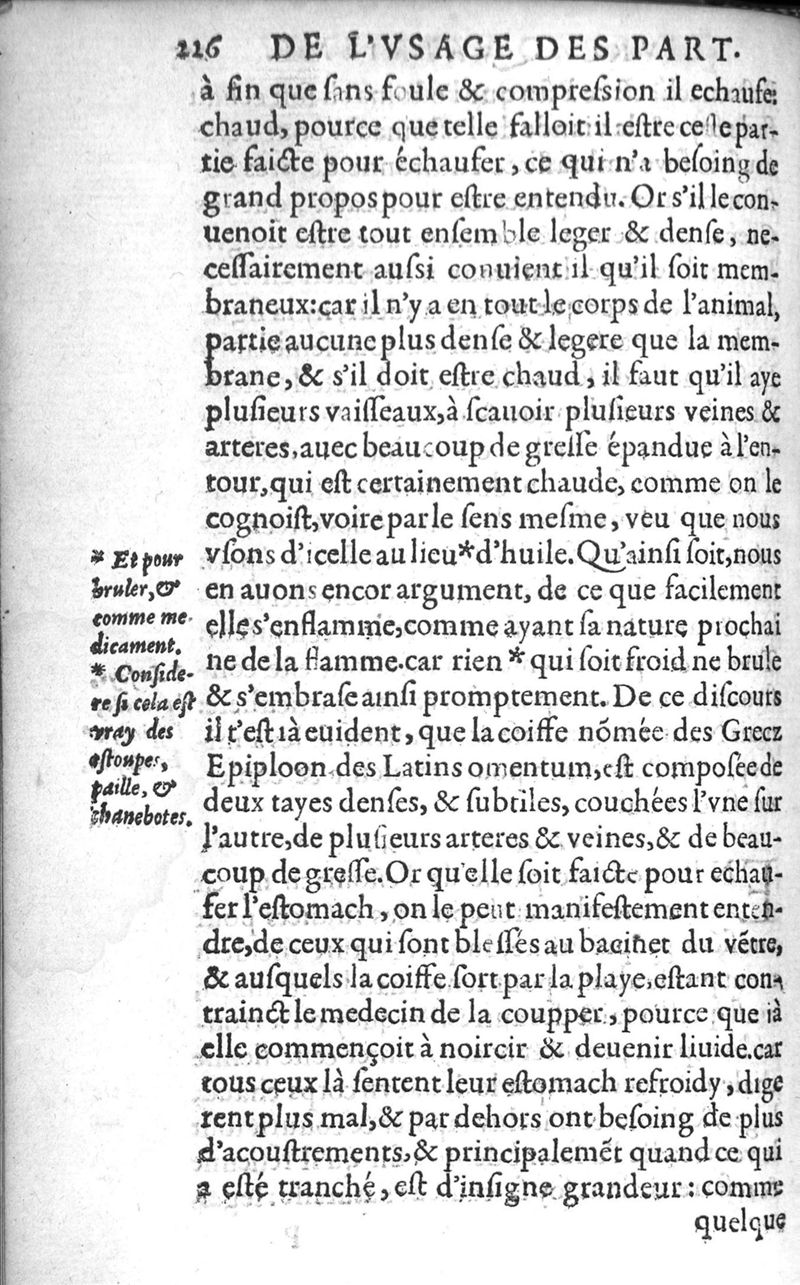 226 DE L'VSAGE DES PART.
à fin que ſans foule & compreſsion il echaufe:
chaud, pource que telle falloit il eſtre ceſte par-
tie faicte pour échaufer, ce qui n'a beſoing de
grand propos pour eſtre entendu. Or s'il le con-
uenoit eſtre tout enſemble leger & denſe, ne-
ceſſairement auſsi conuient il qu'il ſoit mem-
braneux: car il n'y a en tout le corps de l'animal,
partie aucune plus denſe & legere que la mem-
brane, & s'il doit eſtre chaud, il faut qu'il aye
pluſieurs vaiſſeaux, à ſcauoir pluſieurs veines &
arteres, auec beaucoup de greiſſe épandue à l'en-
tour, qui eſt certainement chaude, comme on le
cognoiſt, voire par le ſens meſme, veu que nous
vſons d'icelle au lieu * d'huile. Qu'ainſi ſoit, nous
en auons encor argument, de ce que facilement
elle s'enflamme, comme ayant ſa nature prochai
ne de la flamme. car rien * qui ſoit froid ne brule
& s'embraſe ainſi promptement. De ce diſcours
il t'eſt ià euident, que la coiffe nõmée des Grecz
Epiploon, des Latins omentum, eſt compoſée de
deux tayes denſes, & ſubtiles, couchées l'vne ſur
l'autre, de pluſieurs arteres & veines, & de beau-
coup de greſſe. Or qu'elle ſoit faicte pour echau-
fer l'eſtomach, on le peut manifeſtement enten-
dre, de ceux qui ſont bleſſés au bacinet du vẽtre,
& auſquels la coiffe ſort par la playe, eſtant con-
trainct le medecin de la coupper, pource que ià
elle commençoit à noircir & deuenir liuide. car
tous ceux là ſentent leur eſtomach refroidy, dige
rent plus mal, & par dehors ont beſoing de plus
d'acouſtrements, & principalemẽt quand ce qui
a eſté tranché, eſt d'inſigne grandeur: comme
quelque
* Et pour
bruler, &
comme me
dicament.
* Conſide-
re ſi cela eſt
vray des
eſtoupes,
paille, &
chanebotes.